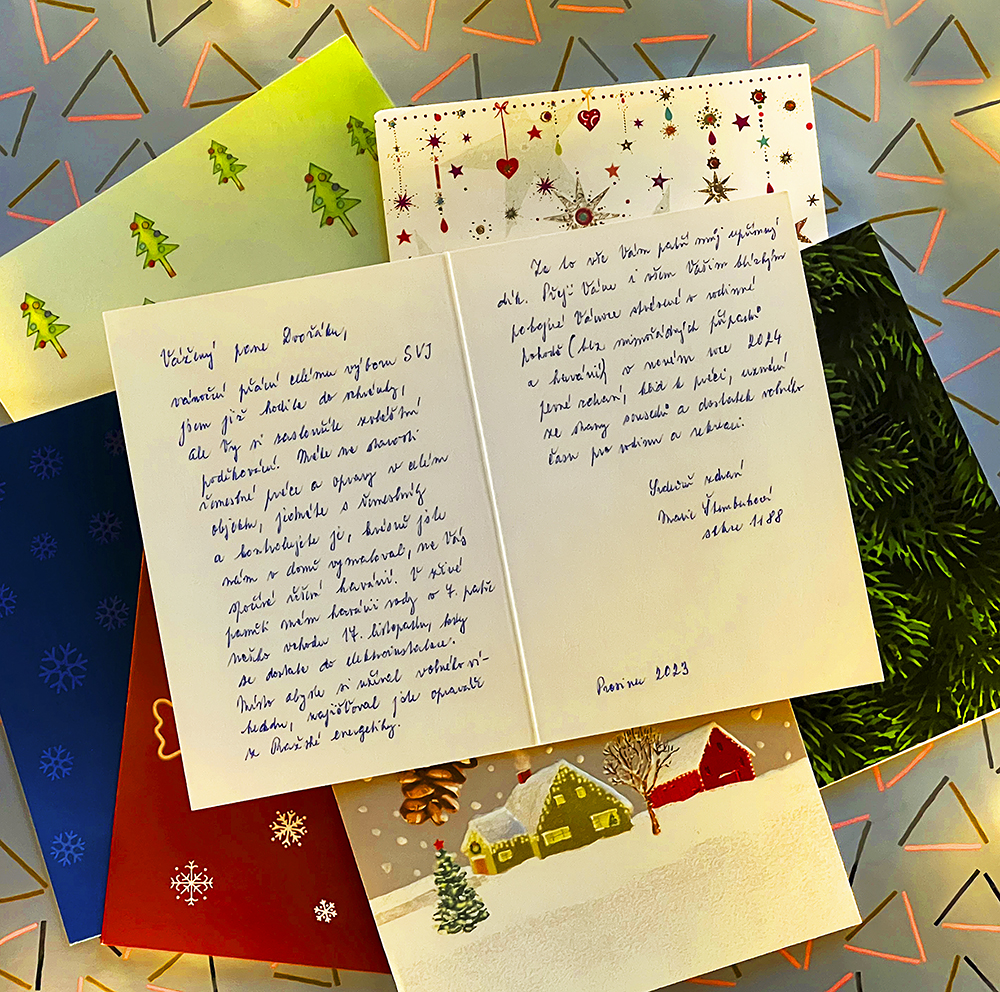 Vážený pane Dvořáku,
vánoční přání celému výboru SVJ
jsem již hodila do schránky,
ale Vy si zasloužíte zvláštní
poděkování. Máte na starosti
řemeslné práce a opravy v celém
objektu, jednáte s řemeslníky
a kontrolujete je, kvůli jste
nám v domě vymaloval, na Vás
spočívá řešení havárií. V živé
paměti mám havárii vody v 7. patře
našeho vchodu 17. listopadu, kdy
se dostala do elektroinstalace.
Místo abyste si užíval volného ví-
kendu, zajišťoval jste opraváře
z Pražské energetiky.
Za to vše Vám patří můj upřímný
dík. Přeji Vám i všem Vašim blízkým
pokojné Vánoce strávené v rodinné
pohodě (bez mimořádných případů
a havárií) v novém roce 2024
pevné zdraví, klid k práci, uznání
ze strany sousedů a dostatek volného
času pro rodinu a rekreaci.
Srdečně zdraví
Marie
1188
Prosinec 2023